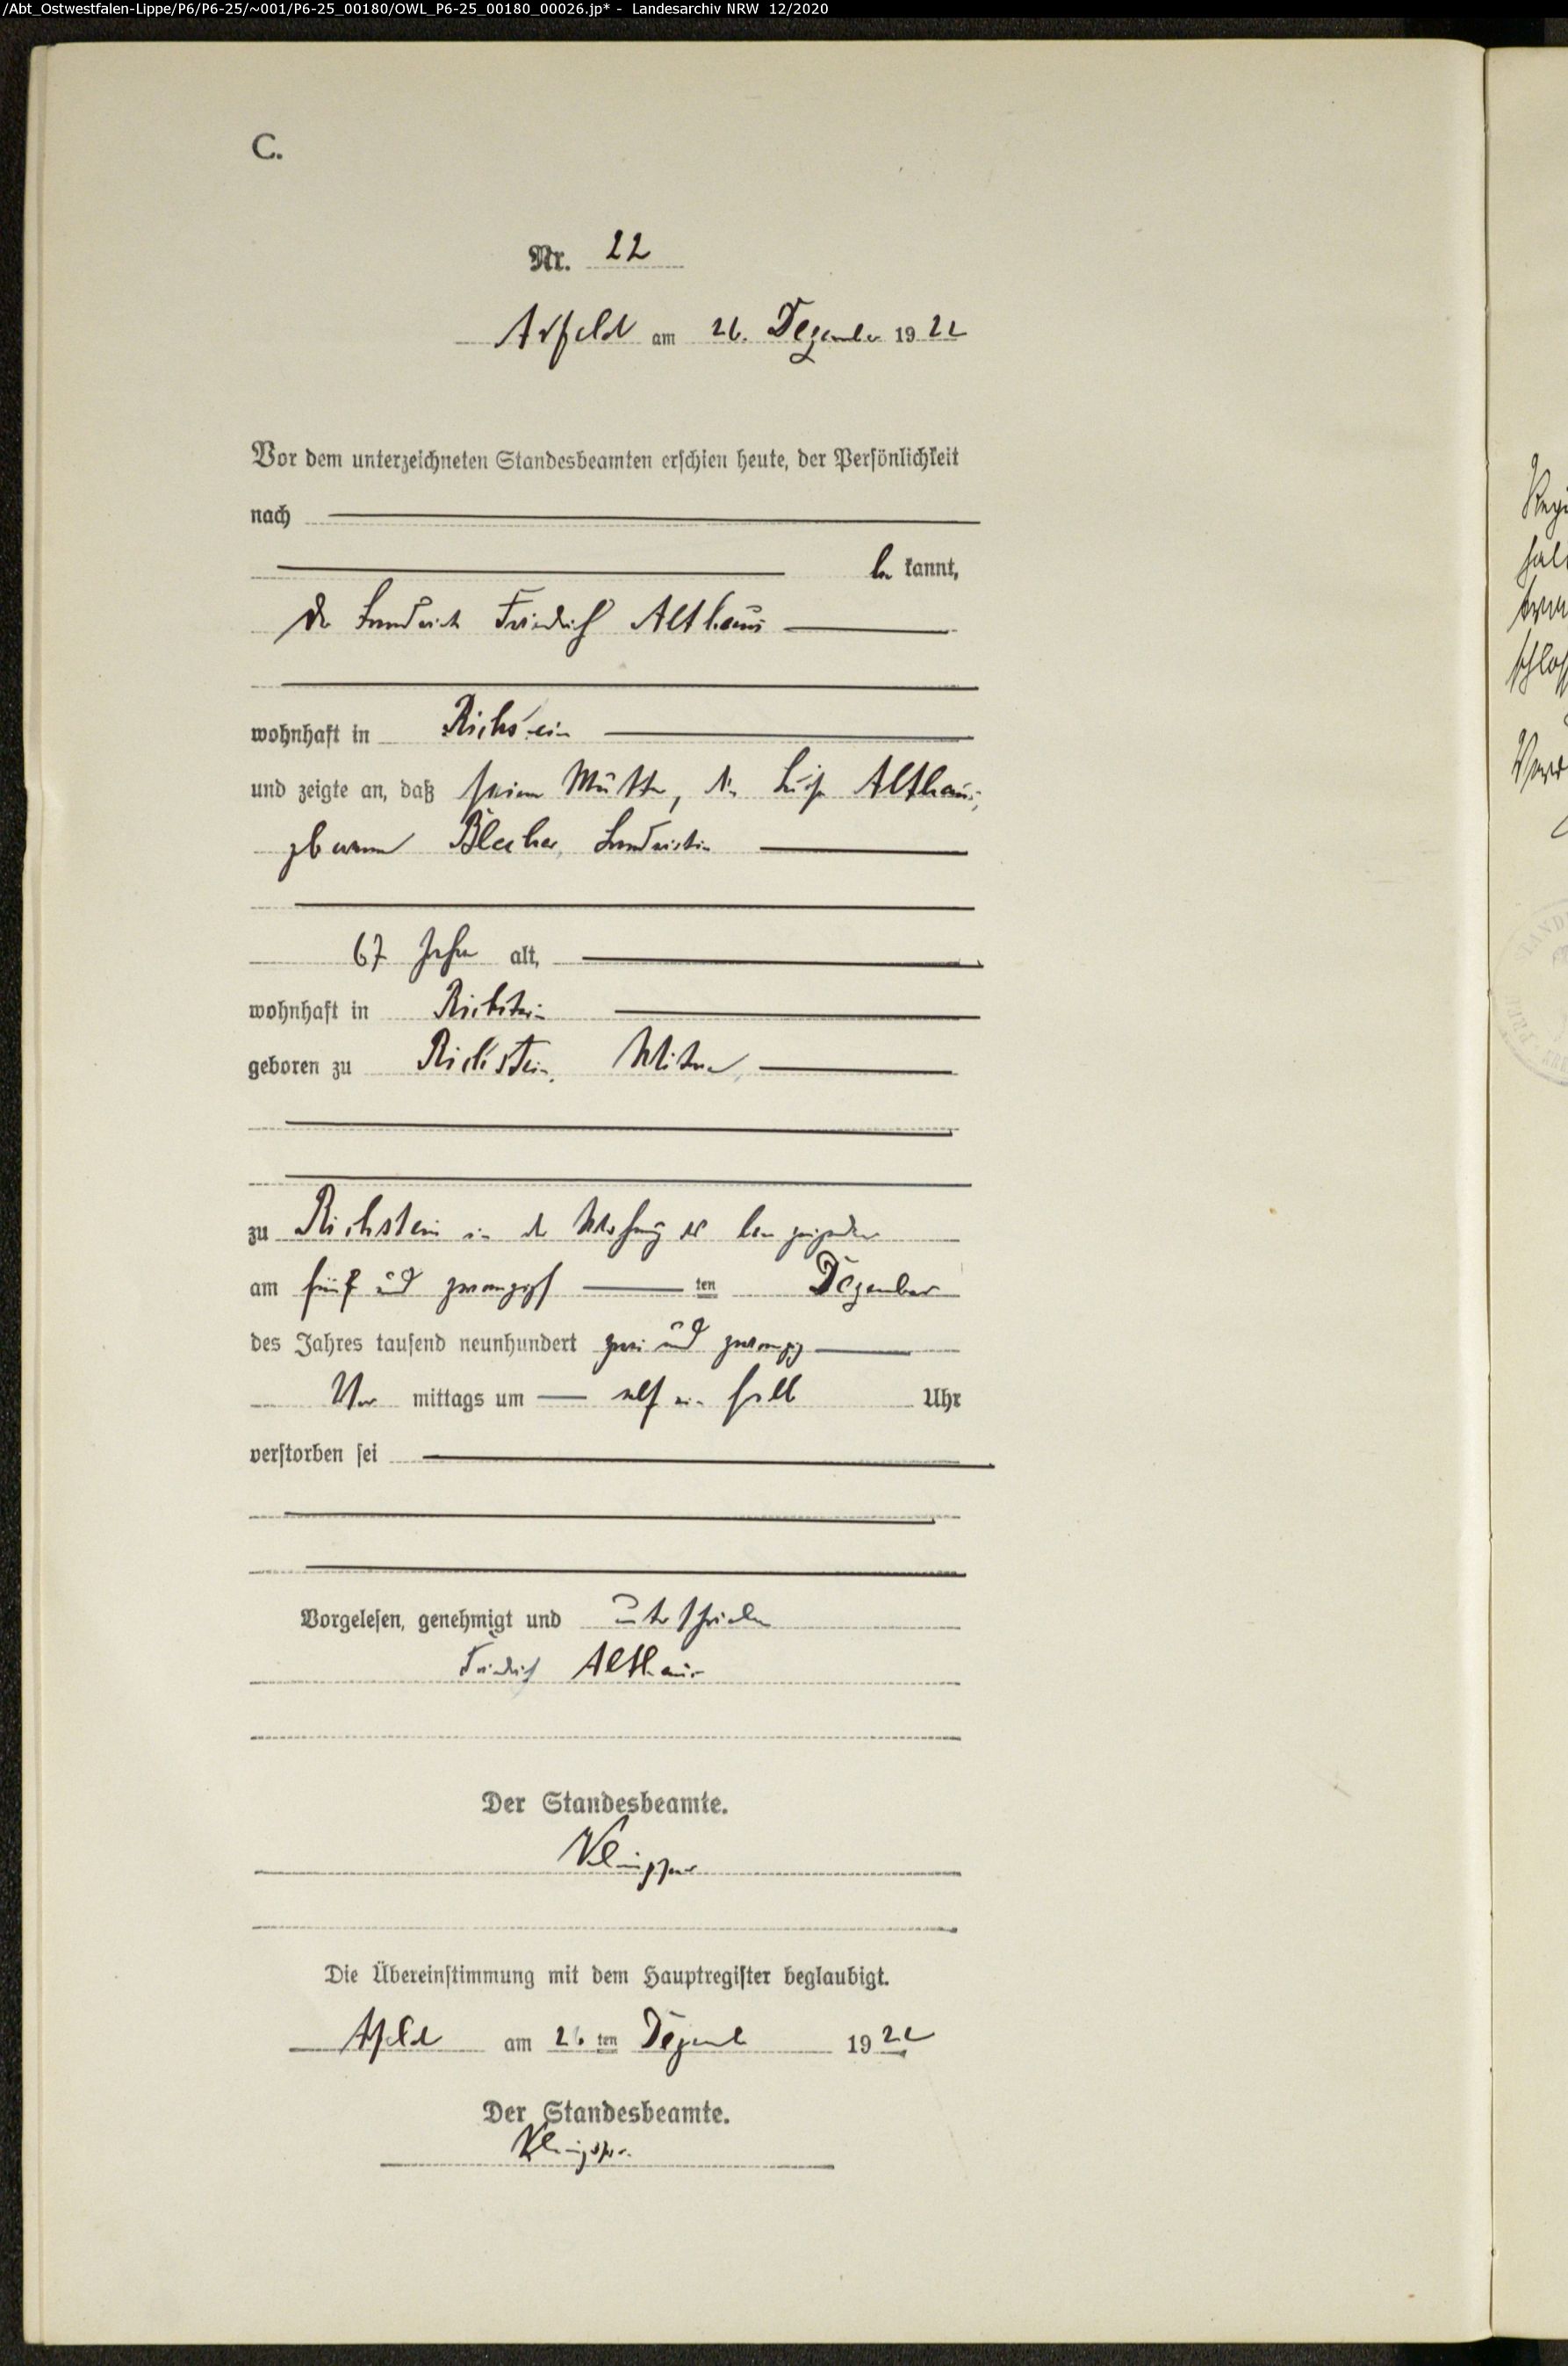 /Abt_Ostwestfalen-Lippe/P6/P6-25/~001/P6-25_00180/OWL_P6-25_00180_00026.jp* - Landesarchiv NRW 12/2020
C.
Nr. 22
Arfeld am 26. Dezember 1922
Vor dem unterzeichneten Standesbeamten erschien heute, der Persönlichkeit
nach
be kannt,
der Landwirt Friedrich Althaus
wohnhaft in Richstein
und zeigte an, daß seine Mutter, die Luise Althaus,
geborene Blecher, Landwirtin
67 Jahre alt,
wohnhaft in Richstein
geboren zu Richstein, Witwe,
zu Richstein in der Wohnung des
am fünf und zwanzigst ten Dezember
des Jahres tausend neunhundert zwei und zwanzig
Vor mittags um elf ein halb Uhr
verstorben sei
Vorgelesen, genehmigt und unterschrieben
Friedrich Althaus
Der Standesbeamte.
Die Übereinstimmung mit dem Hauptregister beglaubigt.
Arfeld am 26. ten Dezember 1922
Der Standesbeamte.